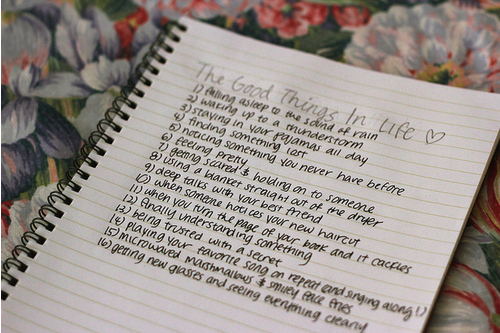 The Good Things In Life ♡
1) falling asleep to the sound of rain
2) waking up to a thunderstorm
3) staying in your pajamas all day
4) finding something lost
5) noticing something you never have before
6) feeling pretty
7) getting scared & holding on to someone
8) using a blanket straight out of the dryer
9) deep talks with your best friend
10) when someone notices your new haircut
11) when you turn the page of your book and it cackles
12) finally understanding something
13) being trusted with a secret
14) playing your favorite song on repeat (and singing along!)
15) microwaved marshmallows & smiley face fries
16) getting new glasses and seeing everything clearly